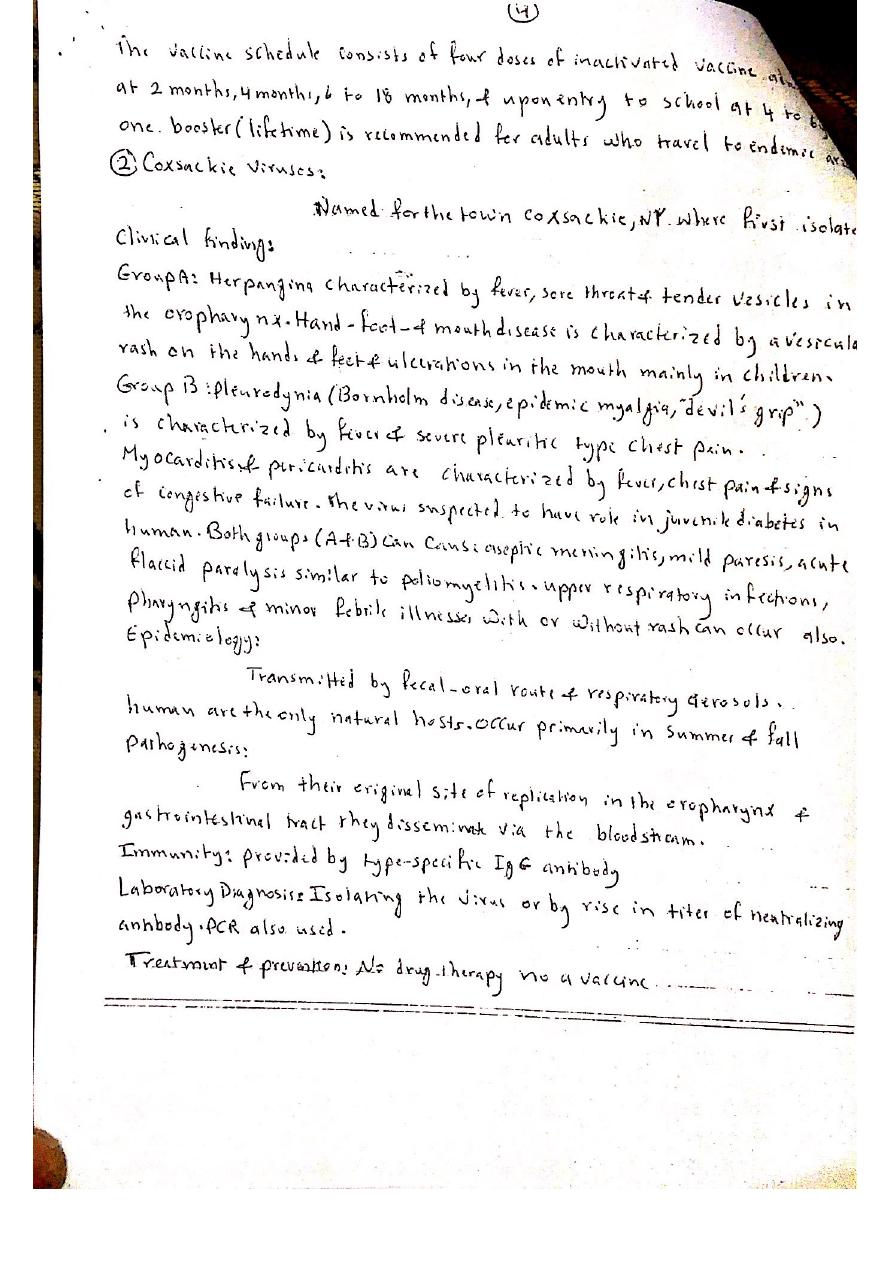 (4)
The vaccine schedule consists of four doses of inactivated vaccine
at 2 months, 4 months, 6 to 18 months, & upon entry to school at 4 to 6
one. booster (lifetime) is recommended for adults who travel to endemic
② Coxsackie Viruses:
Named for the town Coxsackie, NY. where first isolate
Clinical findings:
Group A: Herpangina characterized by fever, sore throat & tender vesicles in
the oropharynx. Hand-foot-& mouth disease is characterized by a vesicula
rash on the hands & feet & ulcerations in the mouth mainly in children.
Group B: Pleurodynia (Bornholm disease, epidemic myalgia, "devil's grip")
is characterized by fever & severe pleuritic type chest pain.
Myocarditis & pericarditis are characterized by fever, chest pain & signs
of congestive failure. The virus suspected to have role in juvenile diabetes in
human. Both groups (A & B) can cause aseptic meningitis, mild paresis, acute
flaccid paralysis similar to poliomyelitis. upper respiratory infections,
pharyngitis & minor febrile illnesses with or without rash can occur also.
Epidemiology:
Transmitted by fecal-oral route & respiratory aerosols.
human are the only natural hosts. occur primarily in summer & fall
Pathogenesis:
From their original site of replication in the oropharynx &
gastrointestinal tract they disseminate via the bloodstream.
Immunity: provided by type-specific IgG antibody
Laboratory Diagnosis: Isolating the virus or by rise in titer of neutralizing
antibody. PCR also used.
Treatment & prevention: No drug therapy no a vaccine